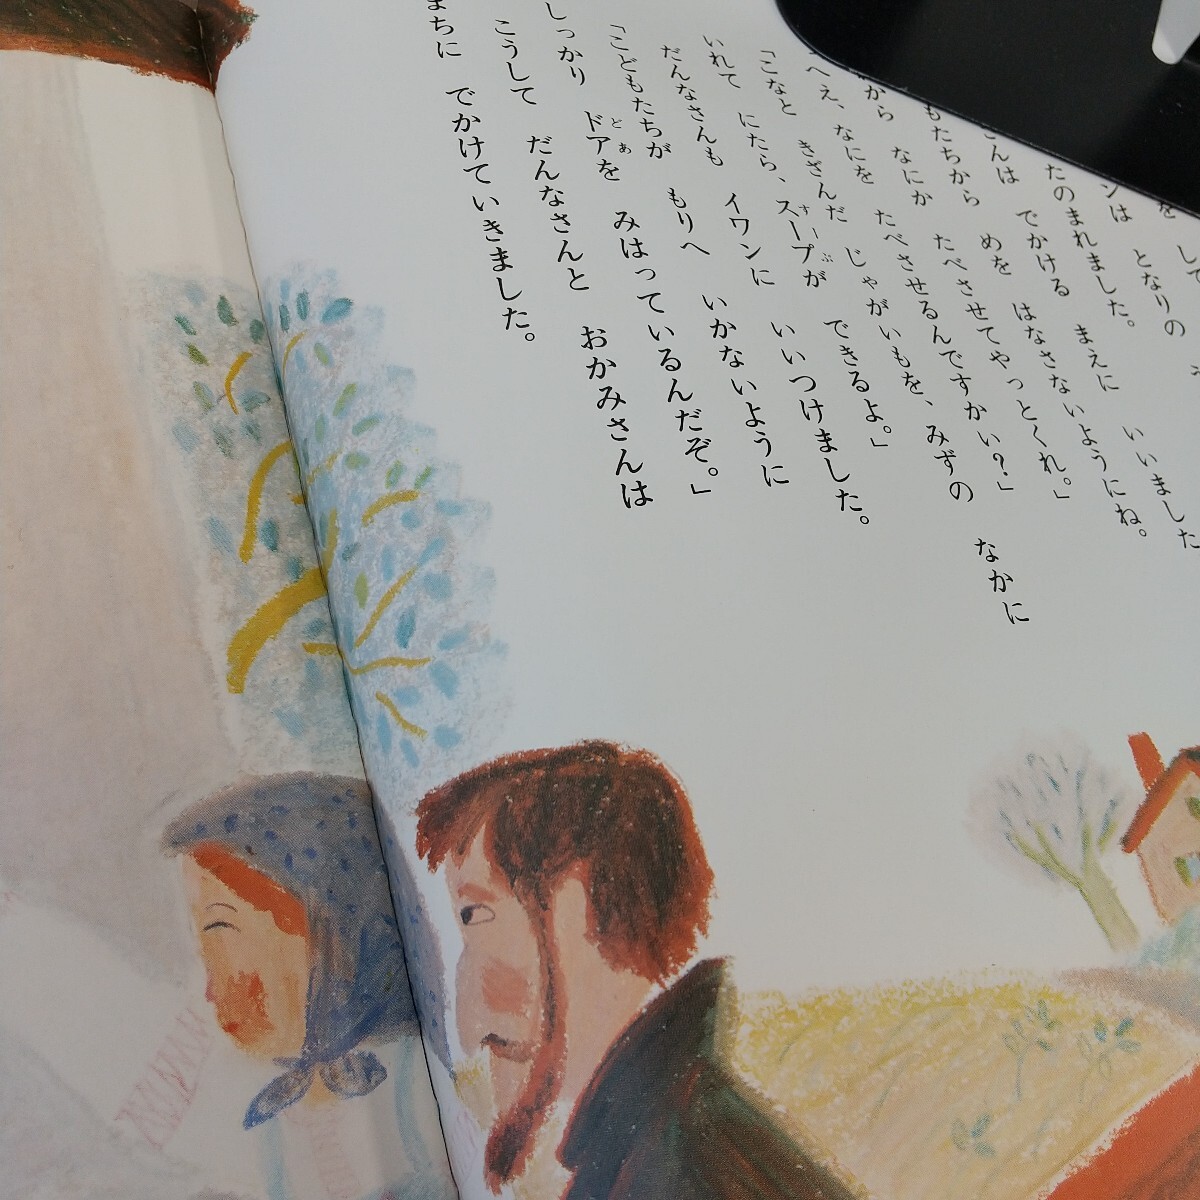 を　して
ンは　となりの
たのまれました。
さんは　でかける　まえに　いいました
もたちから　めを　はなさないようにね。
から　なにか　たべさせてやっとくれ。」
へえ、なにを　たべさせるんですかい？」
「こなと　きざんだ　じゃがいもを、みずの　なかに
いれて　にたら、スープが　できるよ。」
すーぷ
だんなさんも　イワンに　いいつけました。
「こどもたちが　もりへ　いかないように
しっかり　ドアを　みはっているんだぞ。」
どあ
こうして　だんなさんと　おかみさんは
まちに　でかけていきました。